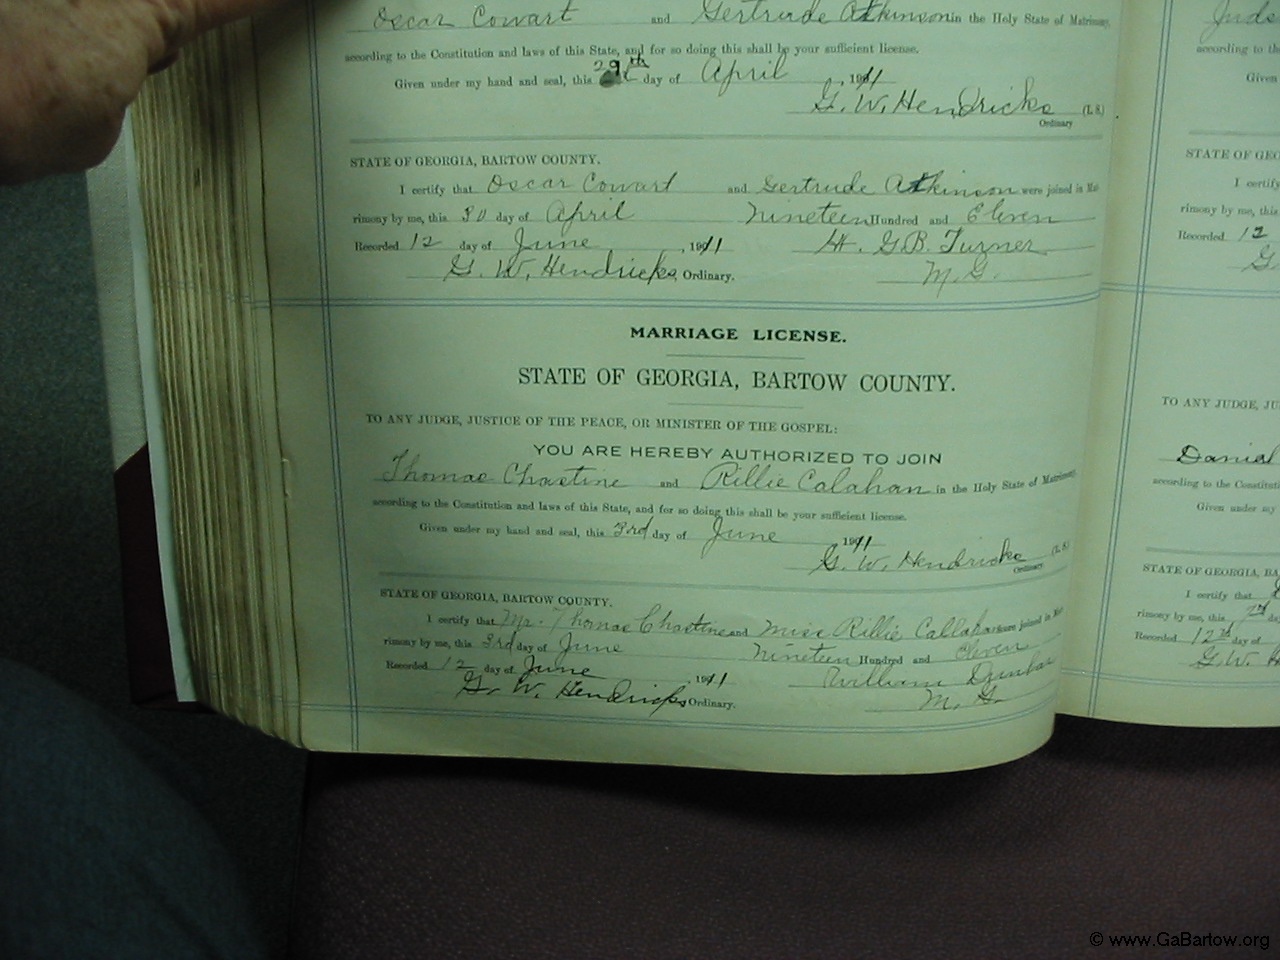 Oscar Cowart and Gertrude Atkinson in the Holy State of Matrimony,
according to the Constitution and laws of this State, and for so doing this shall be your sufficient license.
Given under my hand and seal, this 29th day of April, 1911
G. W. Hendricks (L. S.)
Ordinary
STATE OF GEORGIA, BARTOW COUNTY.
I certify that Oscar Cowart and Gertrude Atkinson were joined in Mat-
rimony by me, this 30 day of April Nineteen Hundred and Eleven
Recorded 12 day of June, 1911 G.B. Turner
G. W. Hendricks, Ordinary. M. G.
MARRIAGE LICENSE.
STATE OF GEORGIA, BARTOW COUNTY.
TO ANY JUDGE, JUSTICE OF THE PEACE, OR MINISTER OF THE GOSPEL:
YOU ARE HEREBY AUTHORIZED TO JOIN
Thomas Chastine and Rillie Calahan in the Holy State of Matrimony,
according to the Constitution and laws of this State, and for so doing this shall be your sufficient license.
Given under my hand and seal, this 3rd day of June 1911
G. W. Hendricks (L. S.)
Ordinary
STATE OF GEORGIA, BARTOW COUNTY.
I certify that Mr. Thomas Chastine and Miss Rillie Callahan were joined in Mat-
rimony by me, this 3rd day of June Nineteen Hundred and Eleven
Recorded 12 day of June, 1911 William Dunbar
G. W. Hendricks Ordinary. M. G.
according to the
Given
STATE OF GEO
I certify
rimony by me, this
Recorded 12
G.
TO ANY JUDGE, JU
Daniel
according to the Constituti
Given under my
STATE OF GEORGIA, BA
I certify that
rimony by me, this 7th da
Recorded 12th day of
G. W. H
© www.GaBartow.org